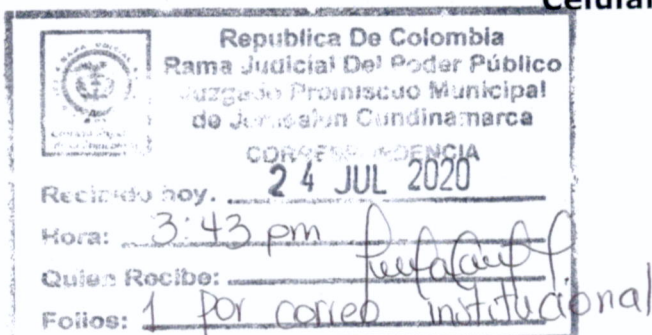 Celular
Republica De Colombia
Rama Judicial Del Poder Público
Juzgado Promiscuo Municipal
de Jerusalen Cundinamarca
CORRESPONDENCIA
Recibido hoy. 24 JUL 2020
Hora: 3:43 pm
Quien Recibe:
Folios: 1 por correo institucional